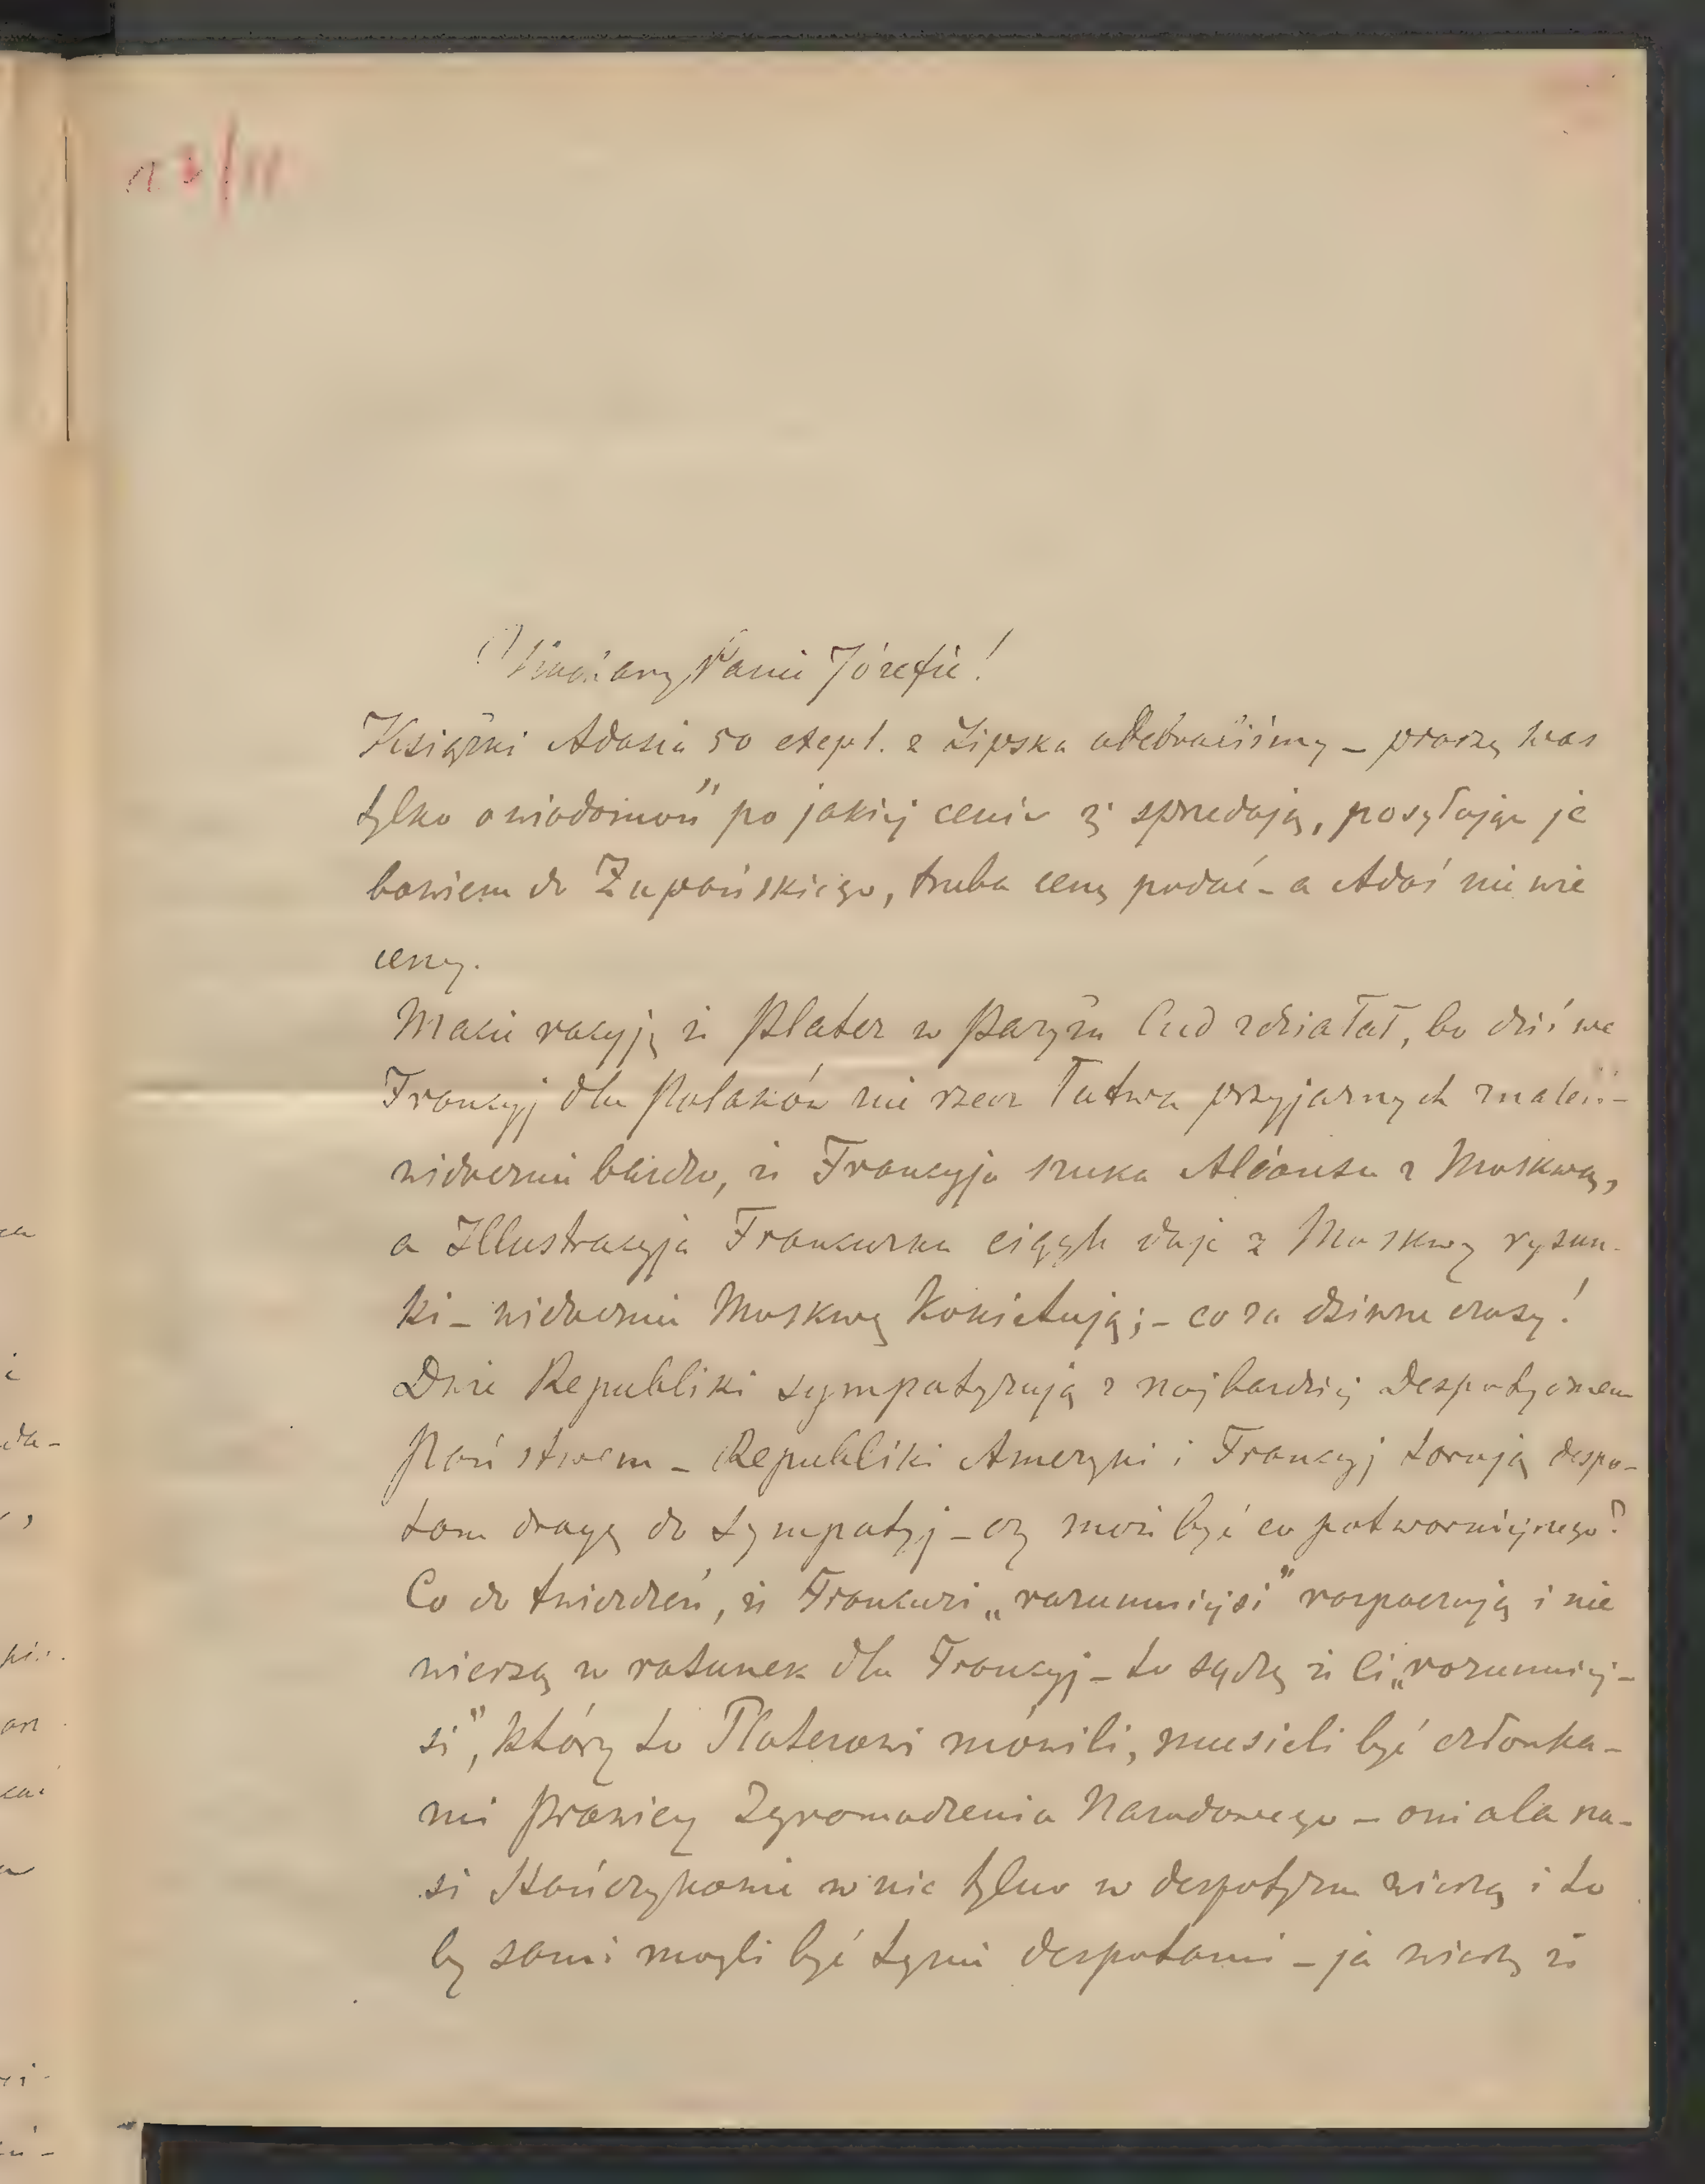 Kochany Panie Józefie!
Książki Adasia 50 exepl. z Lipska odebraliśmy – proszę was
tylko o wiadomość po jakiej cenie się sprzedają, posyłając je
bowiem do Żupańskiego, trzeba cenę podać – a Adaś nie wie
ceny.
Macie racyję że Plater w Paryżu Cud zdziałał, bo dziś we
Francyj dla Polaków nie rzecz łatwa przyjaznych znaleźć –
widocznie bardzo, że Francyja szuka Aliansu z Moskwą,
a Illustracyja Francuzka ciągle daje z Moskwy rysun-
ki – widocznie Moskwę Kokietują; – co za dziwne czasy!
Dwie Republiki sympatyzują z najbardziej despotycznem
Państwem – Republiki Ameryki i Francyj torują despo-
tom drogę do sympatyj – czy może być co potworniejszego?
Co do twierdzeń, że Francuzi „rozumniejsi" rozpaczają i nie
wierzą w ratunek dla Francyj – to sądzę że Ci „rozumniej-
si", którzy to Platerowi mówili, musieli być członka-
mi Prawicy Zgromadzenia Narodowego – oni ala na-
si Stańczykowie w nic tylko w despotyzm wierzą i to
by sami mogli być tymi despotami – ja wierzę że